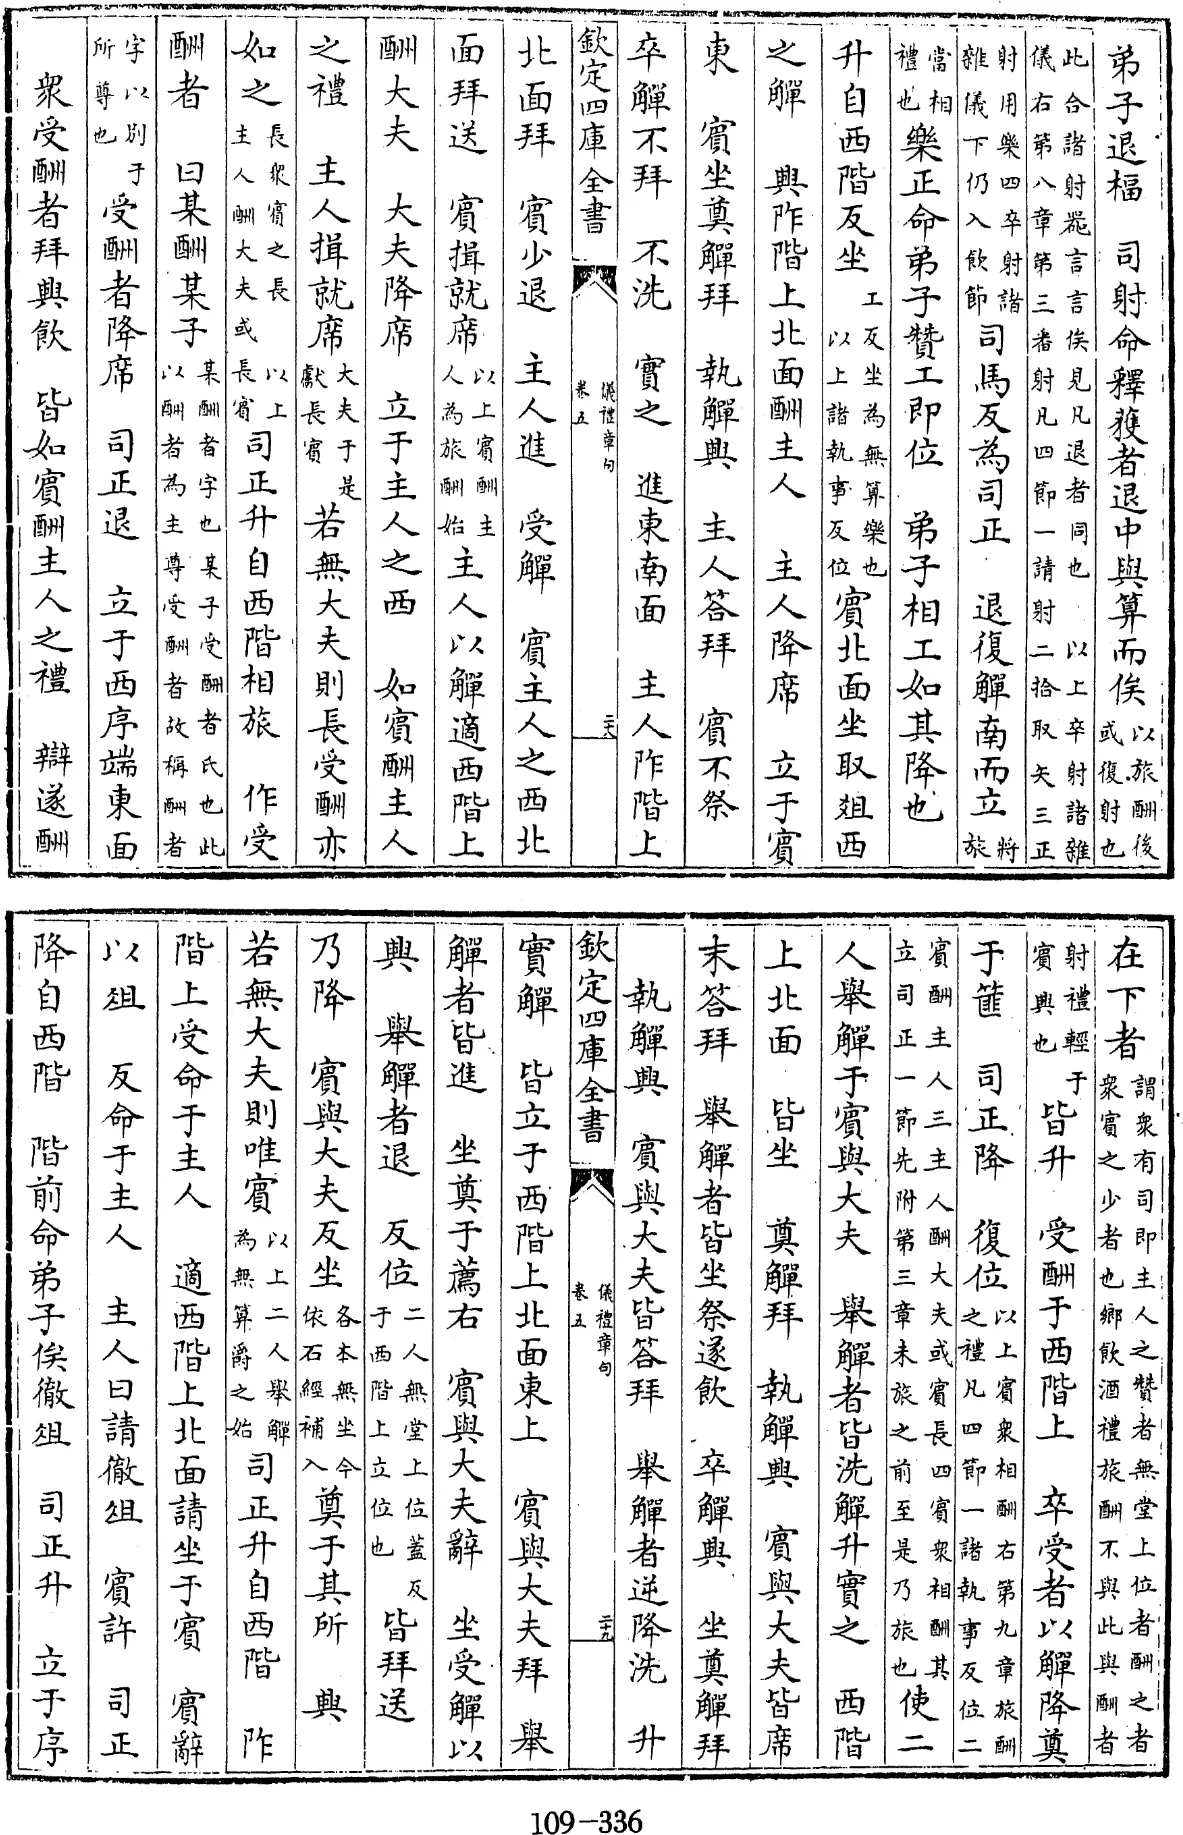 弟子退楅　司射命釋獲者退中與算而俟以旅酬後或復射也
此合諸射器言言俟見凡退者同也　以上卒射諸雜儀右第八章第三番射凡四節一請射二拾取矢三正
射用樂四卒射諸雜儀下仍入飲節司馬反為司正　退復觶南而立將旅
當相禮也樂正命弟子贊工即位　弟子相工如其降也
升自西階反坐工反坐為無算樂也以上諸執事反位賓北面坐取俎西
之觶　興阼階上北面酬主人　主人降席　立于賓
東　賓坐奠觶拜　執觶興　主人答拜　賓不祭
卒觶不拜　不洗　實之　進東南面　主人阼階上
欽定四庫全書　儀禮章句卷五　二十八
北面拜　賓少退　主人進　受觶　賓主人之西北
面拜送　賓揖就席以上賓酬主人為旅酬始主人以觶適西階上
酬大夫　大夫降席　立于主人之西　如賓酬主人
之禮　主人揖就席大夫于是獻長賓若無大夫則長受酬亦
如之長衆賓之長　以上主人酬大夫或長賓司正升自西階相旅　作受
酬者　曰某酬某子某酬者字也某子受酬者氏也此以酬者為主尊受酬者故稱酬者
字以別于所尊也受酬者降席　司正退　立于西序端東面
衆受酬者拜興飲　皆如賓酬主人之禮　辯遂酬
在下者謂衆有司即主人之贊者無堂上位者酬之者衆賓之少者也鄉飲酒禮旅酬不與此與酬者
射禮輕于賓興也皆升　受酬于西階上　卒受者以觶降奠
于篚　司正降　復位以上賓衆相酬右第九章旅酬之禮凡四節一諸執事反位二
賓酬主人三主人酬大夫或賓長四賓衆相酬其立司正一節先附第三章未旅之前至是乃旅也使二
人舉觶于賓與大夫　舉觶者皆洗觶升實之　西階
上北面　皆坐　奠觶拜　執觶興　賓與大夫皆席
末答拜　舉觶者皆坐祭遂飲　卒觶興　坐奠觶拜
執觶興　賓與大夫皆答拜　舉觶者逆降洗　升
欽定四庫全書　儀禮章句卷五　二十九
實觶　皆立于西階上北面東上　賓與大夫拜　舉
觶者皆進　坐奠于薦右　賓與大夫辭　坐受觶以
興　舉觶者退　反位二人無堂上位蓋反于西階上立位也皆拜送
乃降　賓與大夫反坐各本無坐今依石經補入奠于其所　興
若無大夫則唯賓以上二人舉觶為無算爵之始司正升自西階　阼
階上受命于主人　適西階上北面請坐于賓　賓辭
以俎　反命于主人　主人曰請徹俎　賓許　司正
降自西階　階前命弟子俟徹俎　司正升　立于序
109-336